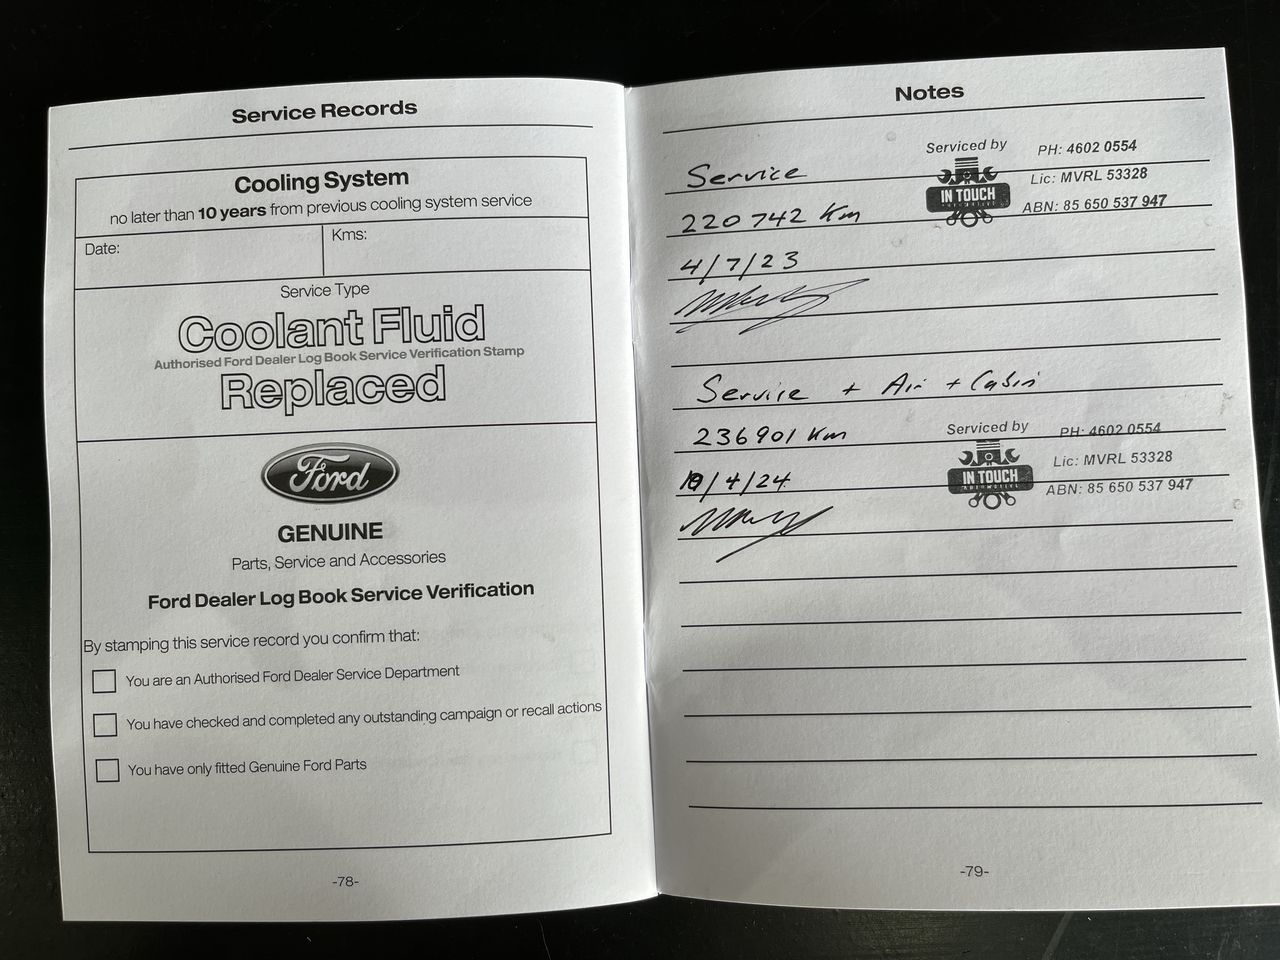 Service Records
Cooling System
no later than 10 years from previous cooling system service
Date:
Kms:
Service Type
Coolant Fluid
Authorised Ford Dealer Log Book Service Verification Stamp
Replaced
Ford
GENUINE
Parts, Service and Accessories
Ford Dealer Log Book Service Verification
By stamping this service record you confirm that:
You are an Authorised Ford Dealer Service Department
You have checked and completed any outstanding campaign or recall actions
You have only fitted Genuine Ford Parts
-78-
Notes
Service
220 742 Km
4/7/23
Serviced by
IN TOUCH
AUTOMOTIVE
PH: 4602 0554
Lic: MVRL 53328
ABN: 85 650 537 947
Service + Air + Cabin
236901 Km
/4/24
Serviced by
IN TOUCH
AUTOMOTIVE
PH: 4602 0554
Lic: MVRL 53328
ABN: 85 650 537 947
-79-